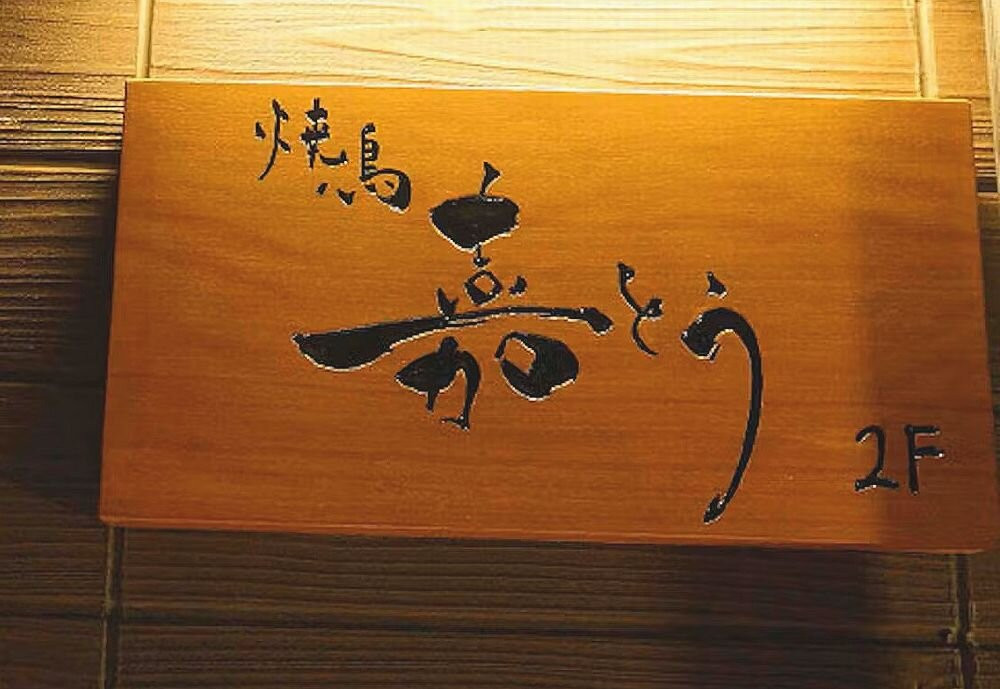 焼鳥
嘉とう
2F